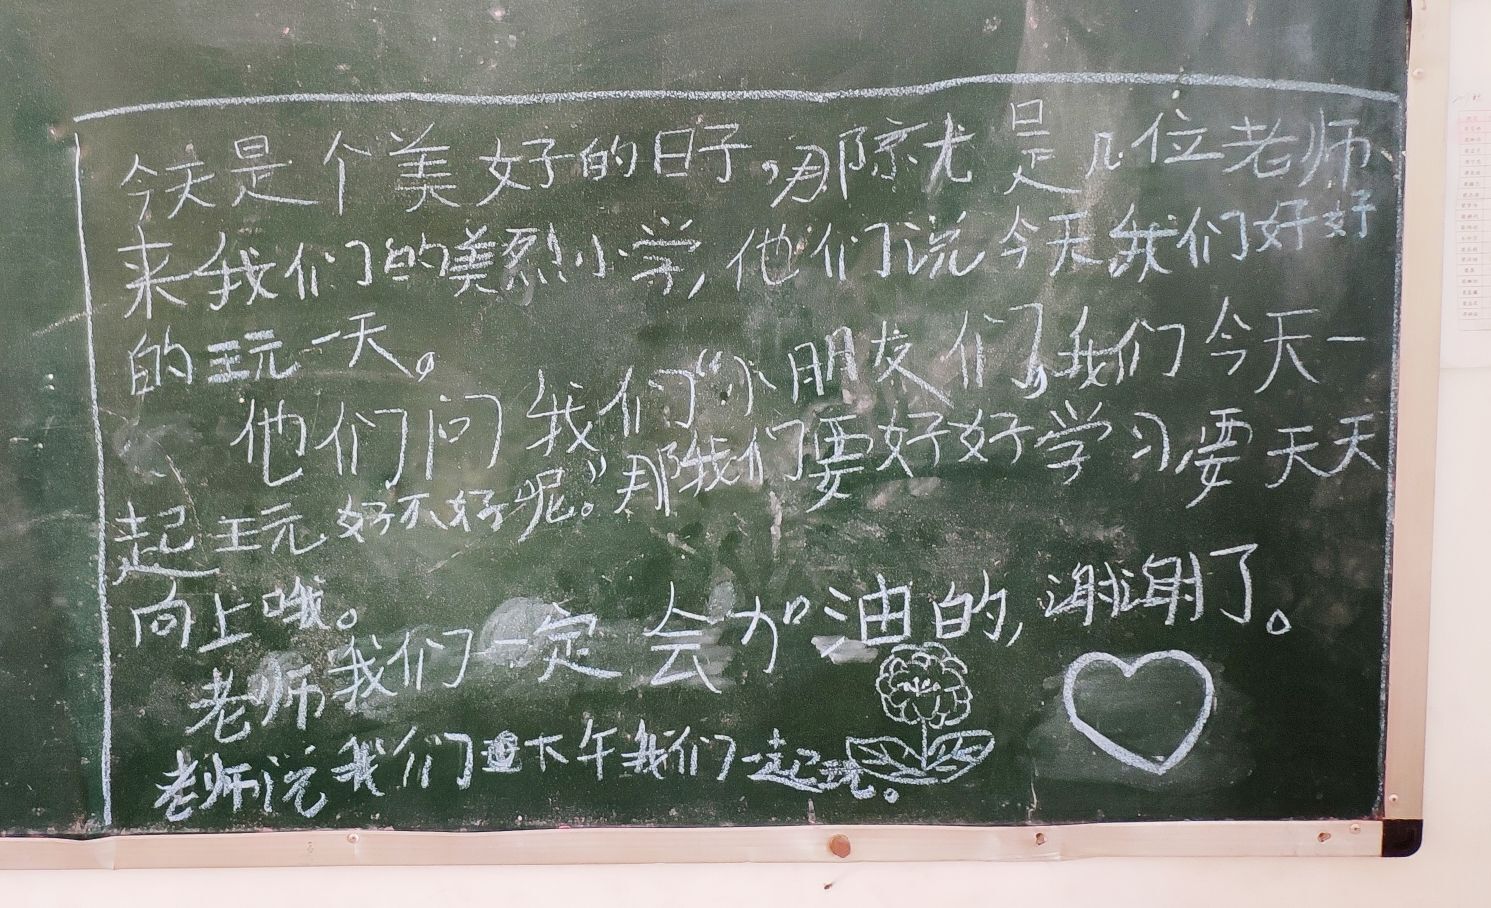 今天是个美好的日子,那就是几位老师
来我们的美烈小学,他们说今天我们好好
的玩一天。
他们问我们“小朋友们,我们今天一
起玩好不好呢。”那我们要好好学习要天天
向上哦。
老师我们一定会加油的,谢谢了。
老师说我们下午我们一起玩。